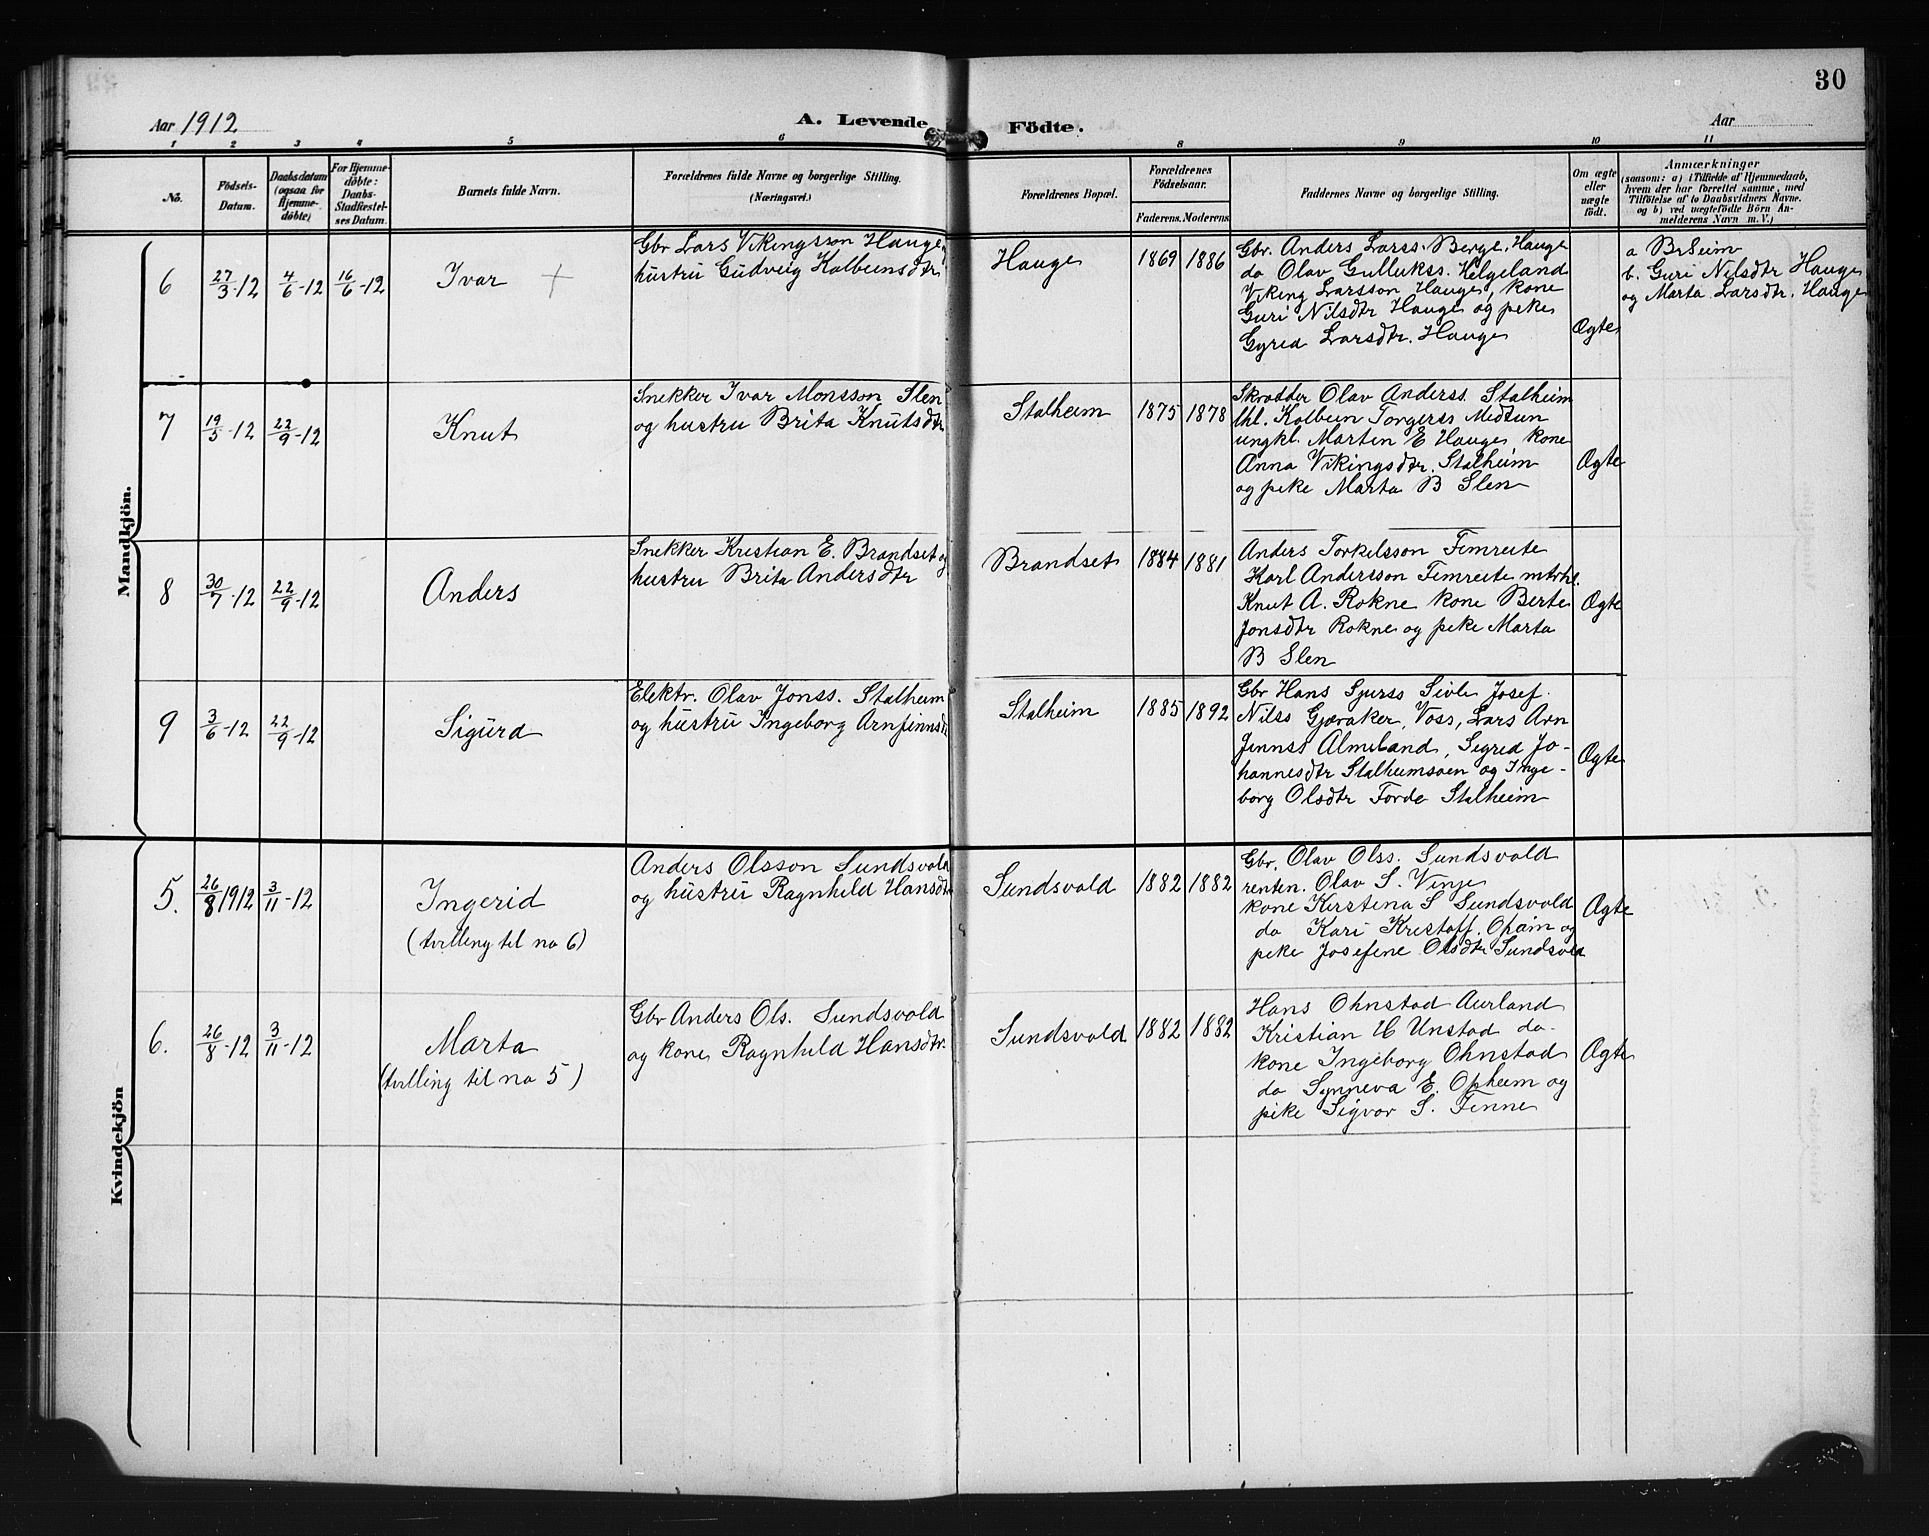 30
Aar 1912
A. Levende
Födte.
Aar
1 2 3 4 5 6 8 9 10 11
No.
Födsels-Datum.
Daabsdatum (ogsaa for Hjemmedöbte)
For Hjemmedöbte: Daabs-Stadfæstelses Datum.
Barnets fulde Navn.
Forældrenes fulde Navne og borgerlige Stilling.
(Næringsvei.)
Forældrenes Bopæl.
Forældrenes Födselsaar.
Faderens. Moderens.
Faddernes Navne og borgerlige Stilling.
Om ægte eller uægte födt.
Anmærkninger
(saasom: a) i Tilfælde af Hjemmedaab,
hvem der har forrettet samme, med
Tilföielse af to Daabsvidners Navne.
og b) ved uægtefödte Börn An-
melderens Navn m. V.)
Mandkjön.
6 27/3-12 4/6-12 16/6-12 Ivar +
Gbr Lars Vikingsson Hauge,
hustru Gudveig Kolbeinsdtr
Hauge 1869 1886
Gbr. Anders Larss. Berge, Hauge
do Olav Gullukss. Helgeland
Viking Larsson Hauge, kone
Guri Nilsdtr Hauge og pike
Gyrid Larsdtr. Hauge
Ægte
a BrSeim
b. Guri Nilsdtr Hauge
og Marta Larsdtr. Hauge
7 19/5-12 22/9-12 Knut
Snekker Ivar Monsson Slen
og hustru Brita Knutsdtr
Stalheim 1875 1878
Skrædder Olav Anderss. Stalheim
Kolbein Torgerss Medsun
ungkl. Martin E Hauge kone
Anna Vikingsdtr. Stalheim
og pike Marta B Slen
Ægte
8 30/7-12 22/9-12 Anders
Snekker Kristian E. Brandset og
hustru Brita Andersdtr
Brandset 1884 1881
Anders Torkelsson Fimreite
Karl Andersson Fimreite
Knut A. Rokne kone Berte
Jonsdtr Rokne og pike Marta
B Slen
Ægte
9 3/6-12 22/9-12 Sigurd
Elektr. Olav Jonss. Stalheim
og hustru Ingeborg Arnfinnsd
Stalheim 1885 1892
Gbr Hans Sjurss Sivle Josef
Nilss Gjæraker, Voss, Lars Arn
finnss Almeland, Sigrid Jo-
hannesdtr Stalheimsøen og Inge-
borg Olsdtr Førde Stalheim
Ægte
Kvindekjön
5. 26/8 1912 3/11-12 Ingerid
(tvilling til no 6)
Anders Olsson Sundsvold
og hustru Ragnhild Hansdtr
Sundsvold 1882 1882
Gbr. Olav Olss. Sundsvold
renten. Olav S. Vinje
kone Kirstina S Sundsvold
do Kari Kristoff. Opheim og
pike Josefine Olsdtr Sundsvold
Ægte
6. 26/8-12 3/11-12 Marta
(tvilling til no 5)
Gbr Anders Ols. Sundsvold
og kone Ragnhild Hansdtr.
Sundsvold 1882 1882
Hans Ohnstad Aurland
Kristian H Unstad do.
kone Ingeborg Ohnstad
do Synneva E. Opheim og
pike Sigvor S. Finne
Ægte